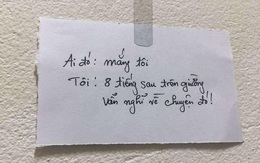 Ai đó: mắng tôi
Tôi: 8 tiếng sau trên giường
vẫn nghĩ về chuyện đó!